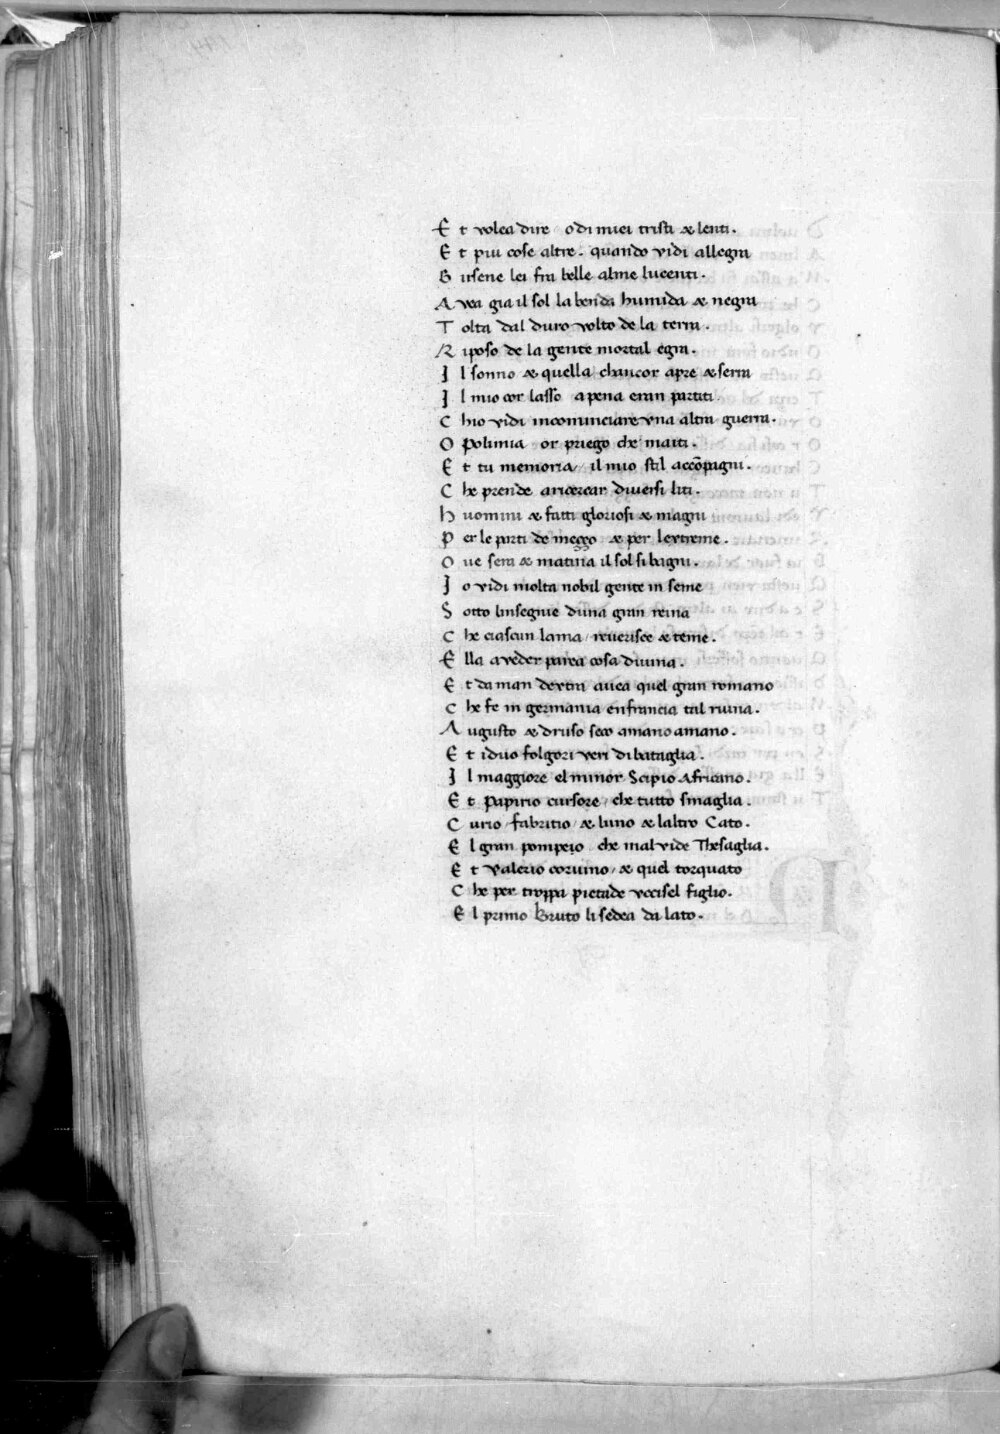 Et volea dire o di miei tristi & lenti.
Et piu cose altre. quando vidi allegra
Girsene lei fra belle alme lucenti.
Avea gia il sol la benda humida & negra
Tolta dal duro volto de la terra.
Riposo de la gente mortal egra.
Il sonno & quella chancor apre & serra
Il mio cor lasso a pena eran partiti.
Chio vidi incominciare vna altra guerra.
O Polimia or priego che maiti.
Et tu memoria / il mio stil accōpagni.
Che prende aricercar diversi liti.
Huomini & fatti gloriosi & magni
Per le parti de mezzo & per lextreme.
Oue sera & matina il sol si bagni.
Io vidi molta nobil gente in seme
Sotto linsegnie duna gran reina
Che ciascun lama / reuerisce & teme.
Ella a veder parea cosa diuina.
Et da man dextra auea quel gran romano
Che fe in germania enfrancia tal ruina.
Augusto & druso seco amano amano.
Et iduo folgori veri di bataglia.
Il maggiore el minor Scipio Africano.
Et Papirio cursore / che tutto smaglia.
Curio / fabritio / & luno & laltro Cato.
El gran pompeio che mal vide Thesaglia.
Et Valerio coruino / & quel torquato
Che per troppa pietade vccisel figlio.
El primo Bruto li sedea da lato.